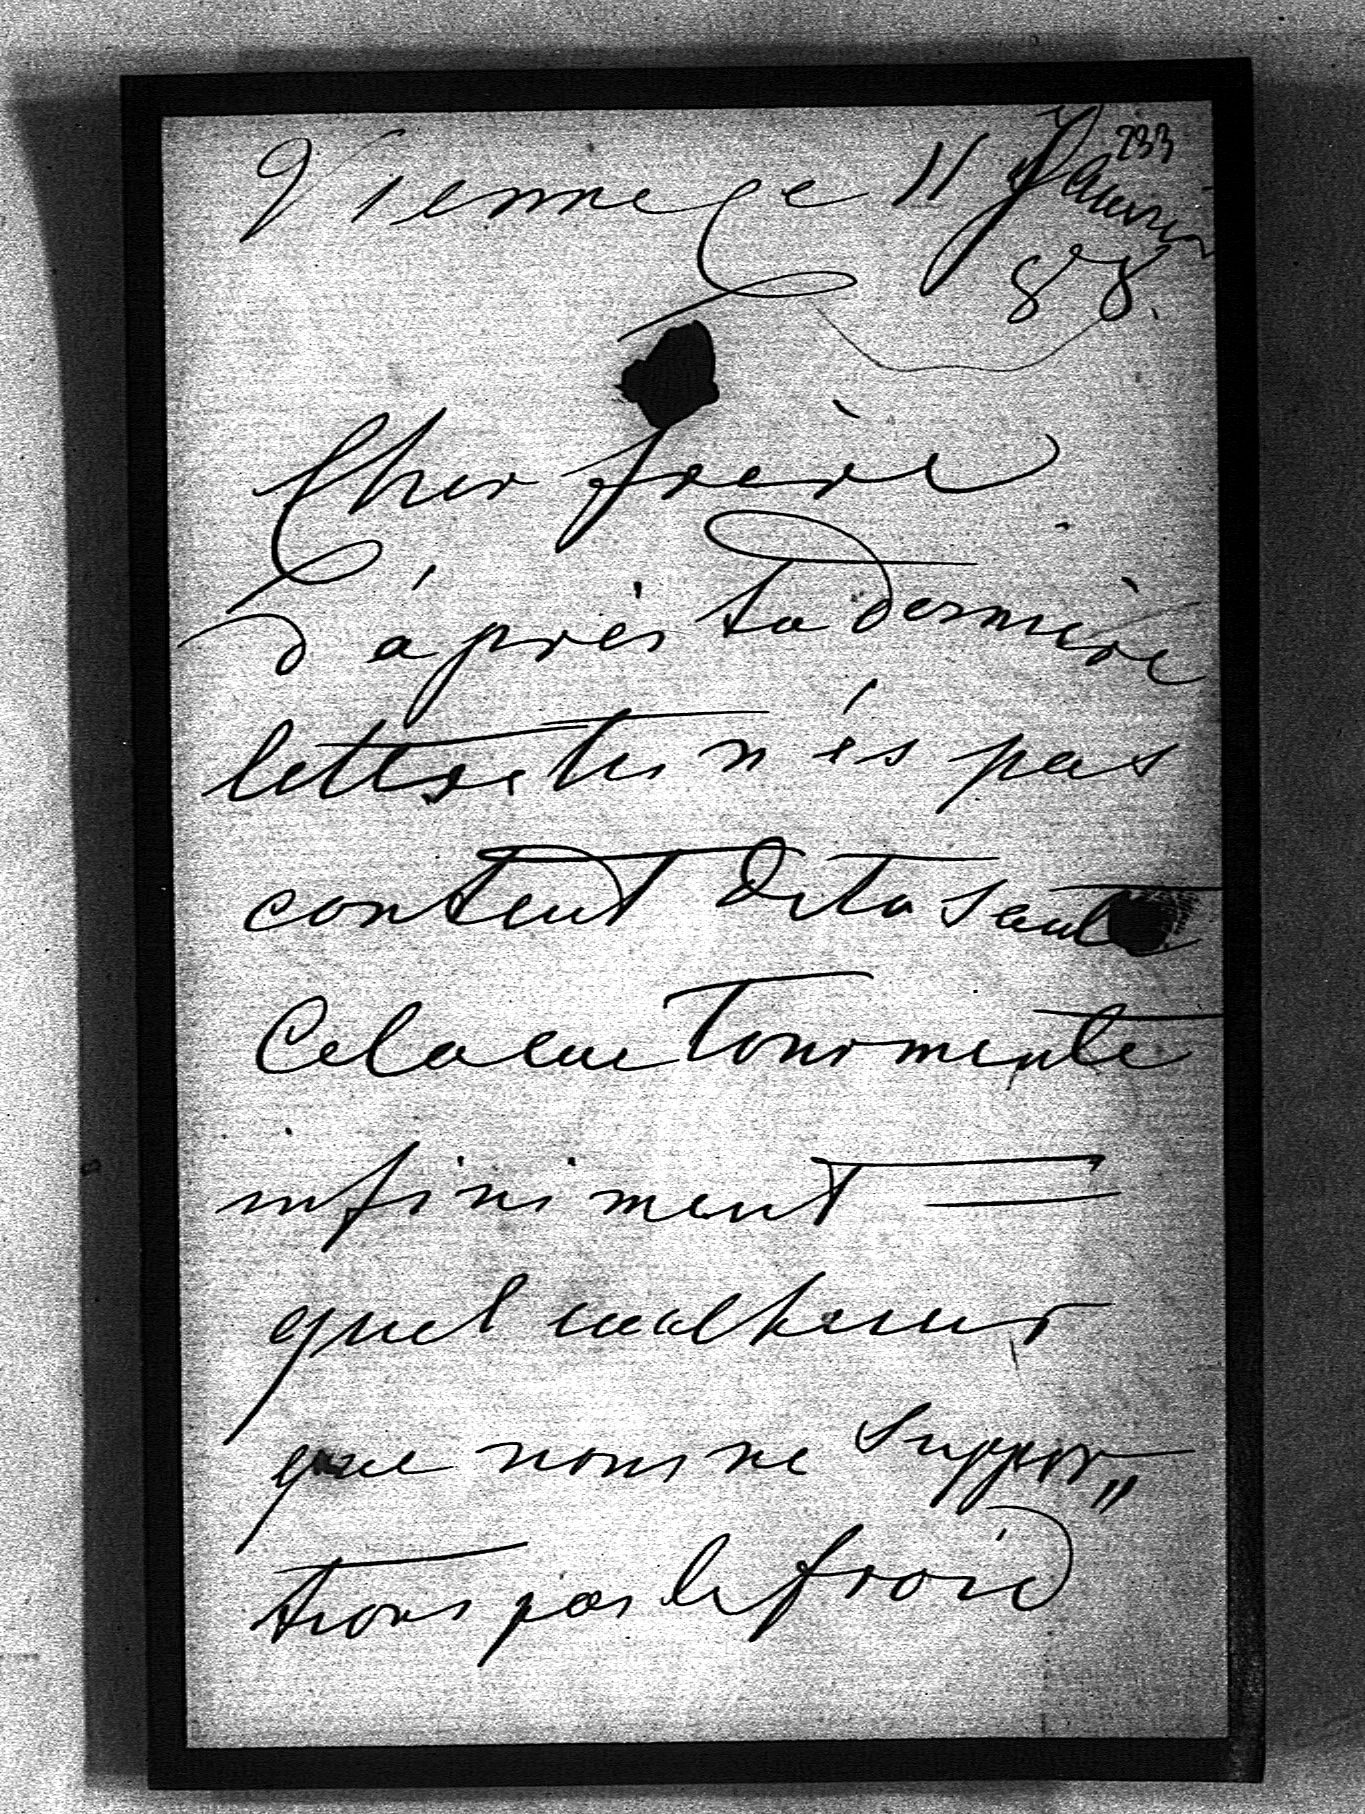 233
Vienne ce 11 Janvier
88.
Cher frère
d'áprés ta dernière
lettre tu n'és pas
content de ta santé
Cela me tourmente
infiniment =
quel malheur
que nous ne suppor„
tions pas le froid